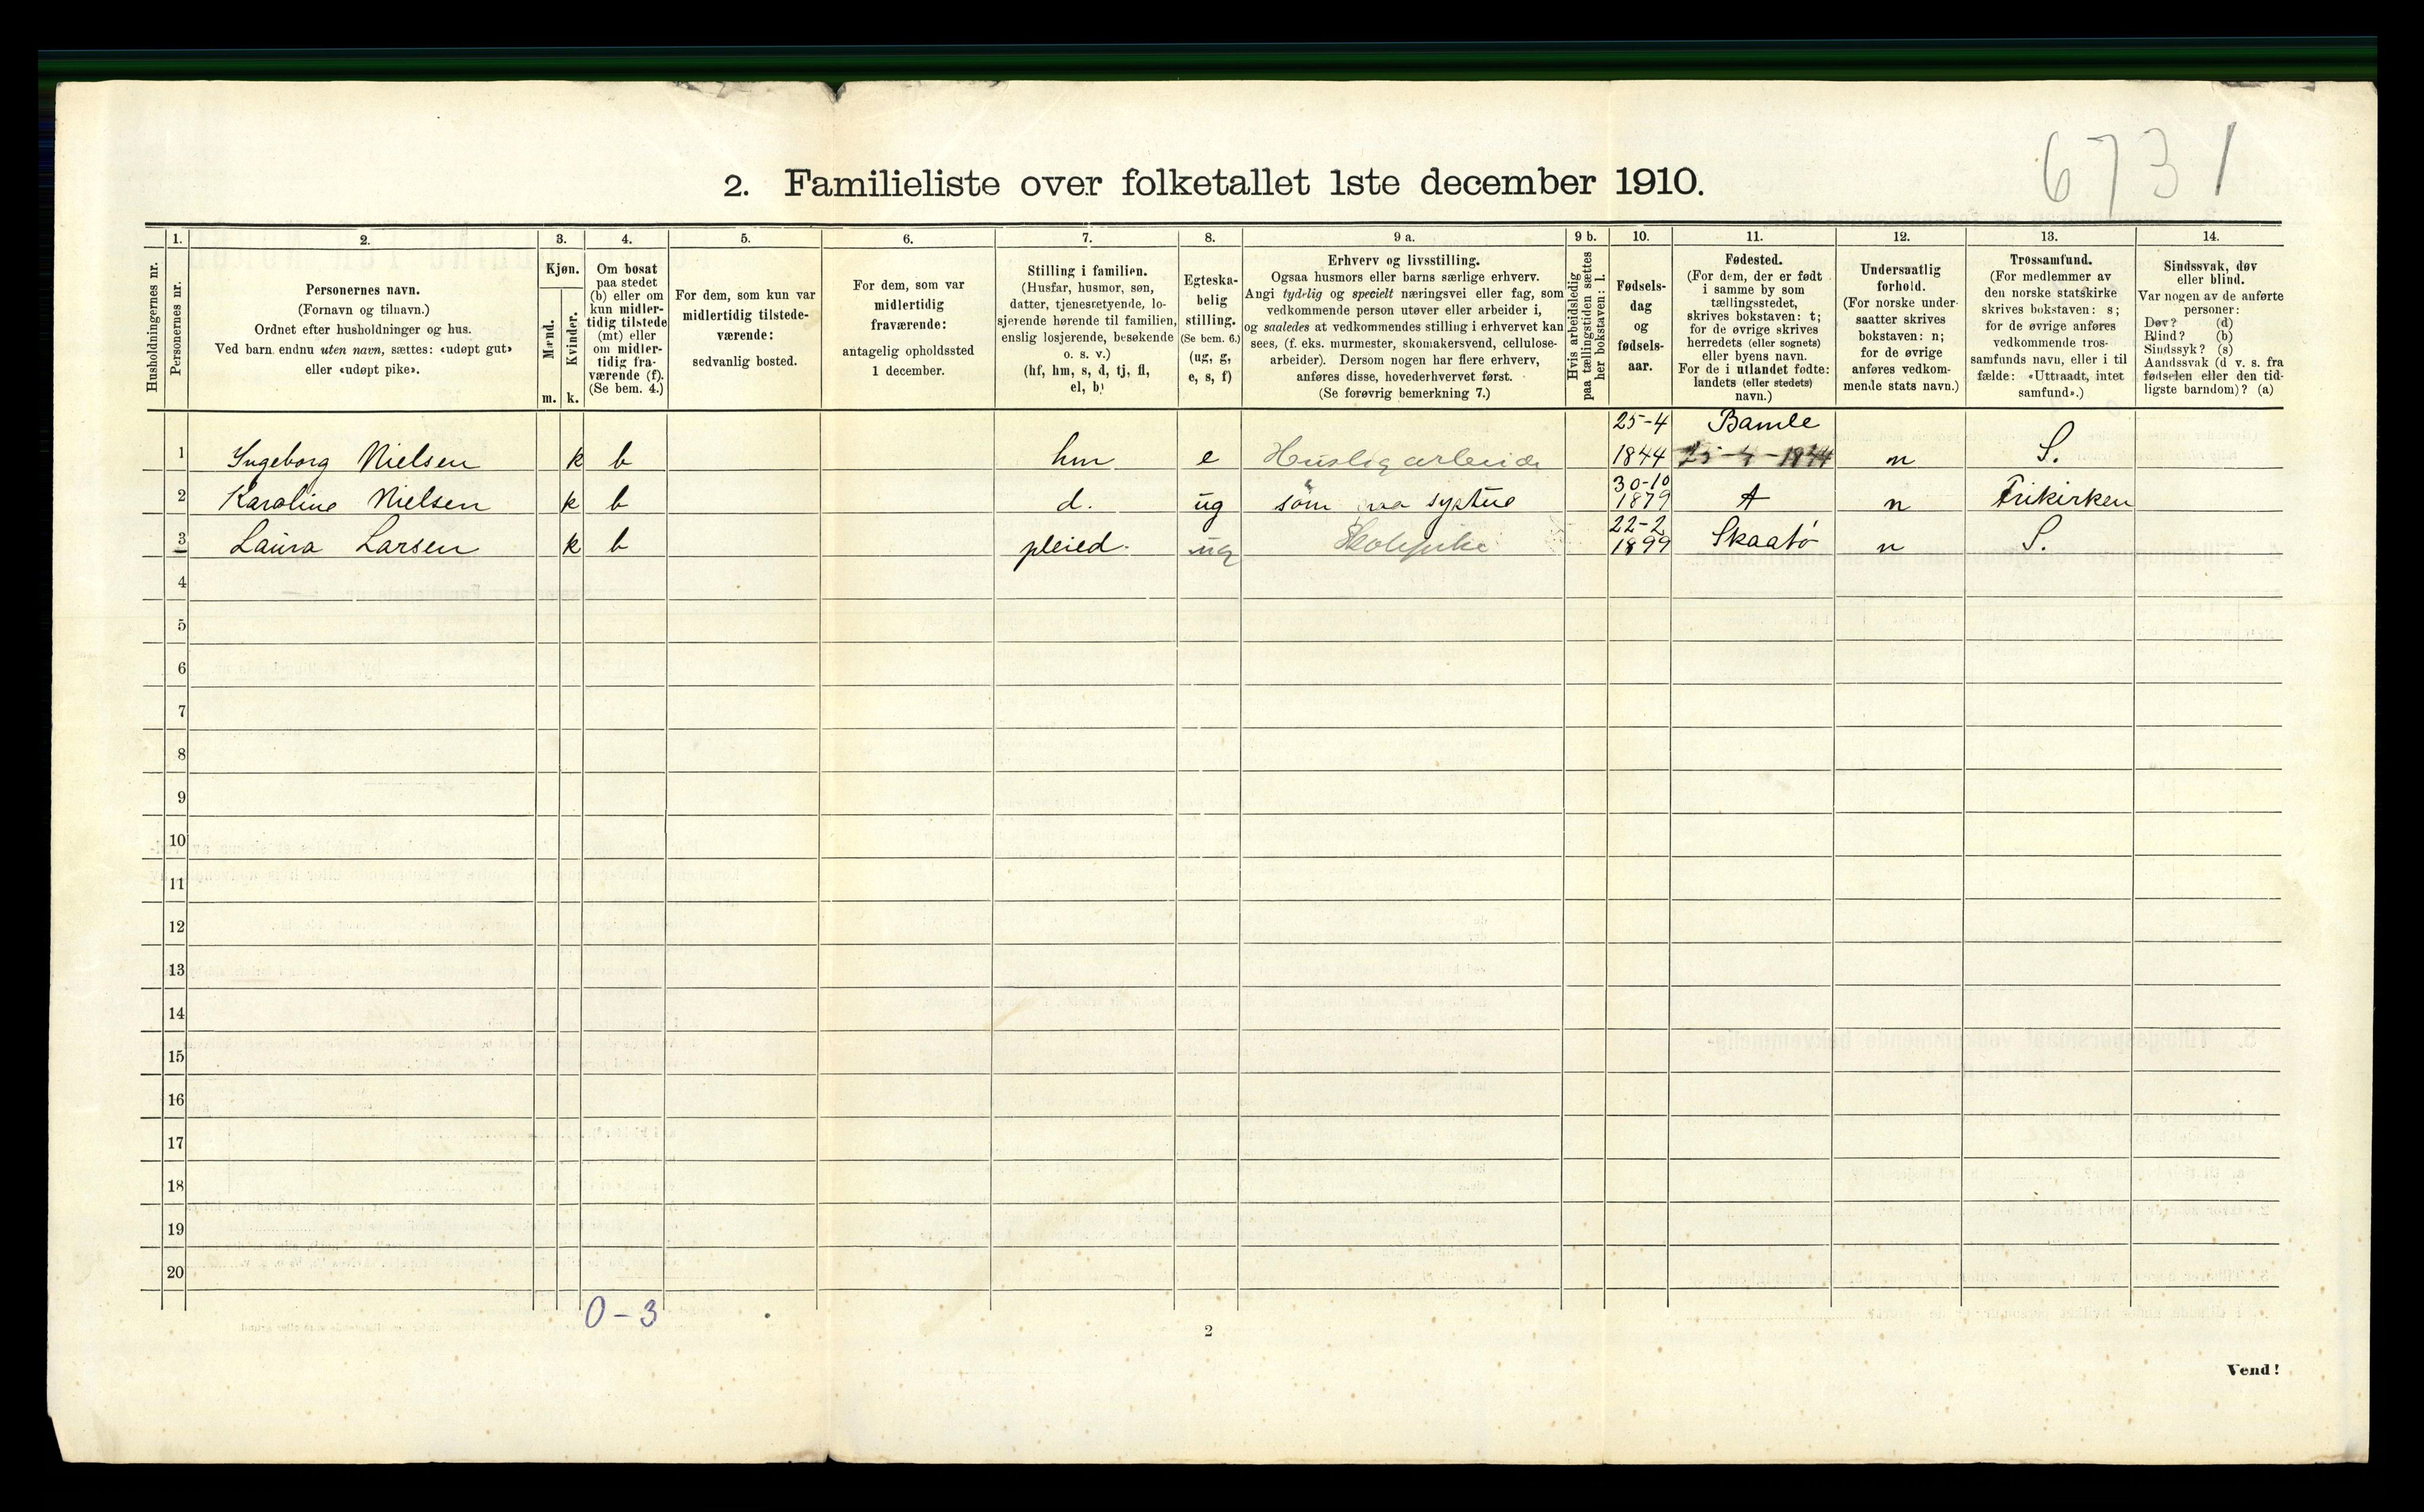 6731
2. Familieliste over folketallet 1ste december 1910.
Husholdningernes nr.
1. Personernes nr.
2. Personernes navn.
(Fornavn og tilnavn.)
Ordnet efter husholdninger og hus.
Ved barn endnu uten navn, sættes: «udøpt gut»
eller «udøpt pike».
3. Kjøn.
Mænd. m.
Kvinder. k.
4. Om bosat
paa stedet
(b) eller om
kun midler-
tidig tilstede
(mt) eller
om midler-
tidig fra-
værende (f).
(Se bem. 4.)
5. For dem, som kun var
midlertidig tilstede-
værende:
sedvanlig bosted.
6. For dem, som var
midlertidig
fraværende:
antagelig opholdssted
1 december.
7. Stilling i familien.
(Husfar, husmor, søn,
datter, tjenestetyende, lo-
sjerende hørende til familien,
enslig losjerende, besøkende
o. s. v.)
(hf, hm, s, d, tj, fl,
el, b)
8. Egteska-
belig
stilling.
(Se bem. 6.)
(ug, g,
e, s, f)
9 a. Erhverv og livsstilling.
Ogsaa husmors eller barns særlige erhverv.
Angi tydelig og specielt næringsvei eller fag, som
vedkommende person utøver eller arbeider i,
og saaledes at vedkommendes stilling i erhvervet kan
sees, (f. eks. murmester, skomakersvend, cellulose-
arbeider). Dersom nogen har flere erhverv,
anføres disse, hovederhvervet først.
(Se forøvrig bemerkning 7.)
9 b. Hvis arbeidsledig
paa tællingstiden sættes
her bokstaven: l.
10. Fødsels-
dag
og
fødsels-
aar.
11. Fødested.
(For dem, der er født
i samme by som
tællingsstedet,
skrives bokstaven: t;
for de øvrige skrives
herredets (eller sognets)
eller byens navn.
For de i utlandet fødte:
landets (eller stedets)
navn.)
12. Undersaatlig
forhold.
(For norske under-
saatter skrives
bokstaven: n;
for de øvrige
anføres vedkom-
mende stats navn.)
13. Trossamfund.
(For medlemmer av
den norske statskirke
skrives bokstaven: s;
for de øvrige anføres
vedkommende tros-
samfunds navn, eller i til
fælde: «Uttraadt, intet
samfund».)
14. Sindssvak, døv
eller blind.
Var nogen av de anførte
personer:
Døv? (d)
Blind? (b)
Sindssyk? (s)
Aandssvak (d v. s. fra
fødselen eller den tid-
ligste barndom)? (a)
1 Ingeborg Nielsen k b hm e Huslig arbeide 25-4 1844 Bamle 25-4-1844 n S.
2 Karoline Nielsen k b d. ug søm paa systue 30-10 1879 t n Frikirken
3 Laura Larsen k b pleied. ug Skolepike 22-2 1899 Skaatø n S.
4
5
6
7
8
9
10
11
12
13
14
15
16
17
18
19
20
0-3
2
Vend!